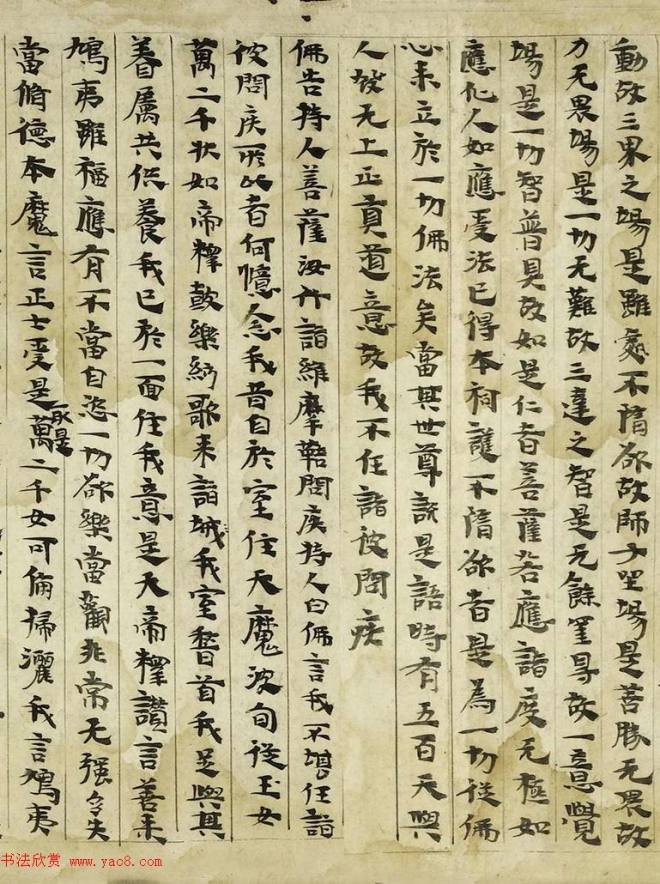 動故三界之場是雖處不隋欲故師子坐場是善勝无畏故
力无畏場是一切无難故三達之智是无餘罣㝵故一意覺
場是一切智普具故如是仁者菩薩若應諸度无極如
應化人如應受法已得本祠護不隋欲者是為一切從佛
心来立於一切佛法矣當其世尊說是語時有五百天與
人發无上正真道意故我不任詣彼問疾
佛告持人菩薩汝行詣維摩詰問疾持人白佛言我不堪任詣
彼問疾所以者何憶念我昔自於室住天魔波旬從玉女
萬二千狀如帝釋鼓樂絃歌来詣城我室稽首我足與其
眷属共供養我已於一面住我意是天帝釋讚言善来
鳩夷雖福應有不當自恣一切欲樂當觀非常无强多失
當脩德本魔言正士受是萬二千女可備掃灑我言鳩夷
书法欣赏 www.yac8.com